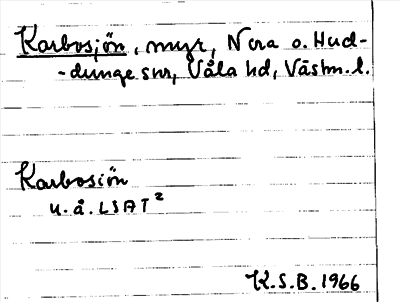 Karbosjön, myr, Nora o. Hud-
-dunge snr, Våla hd, Västm. l.
Karbosiön
u.å. LSA T²
K.S.B. 1966